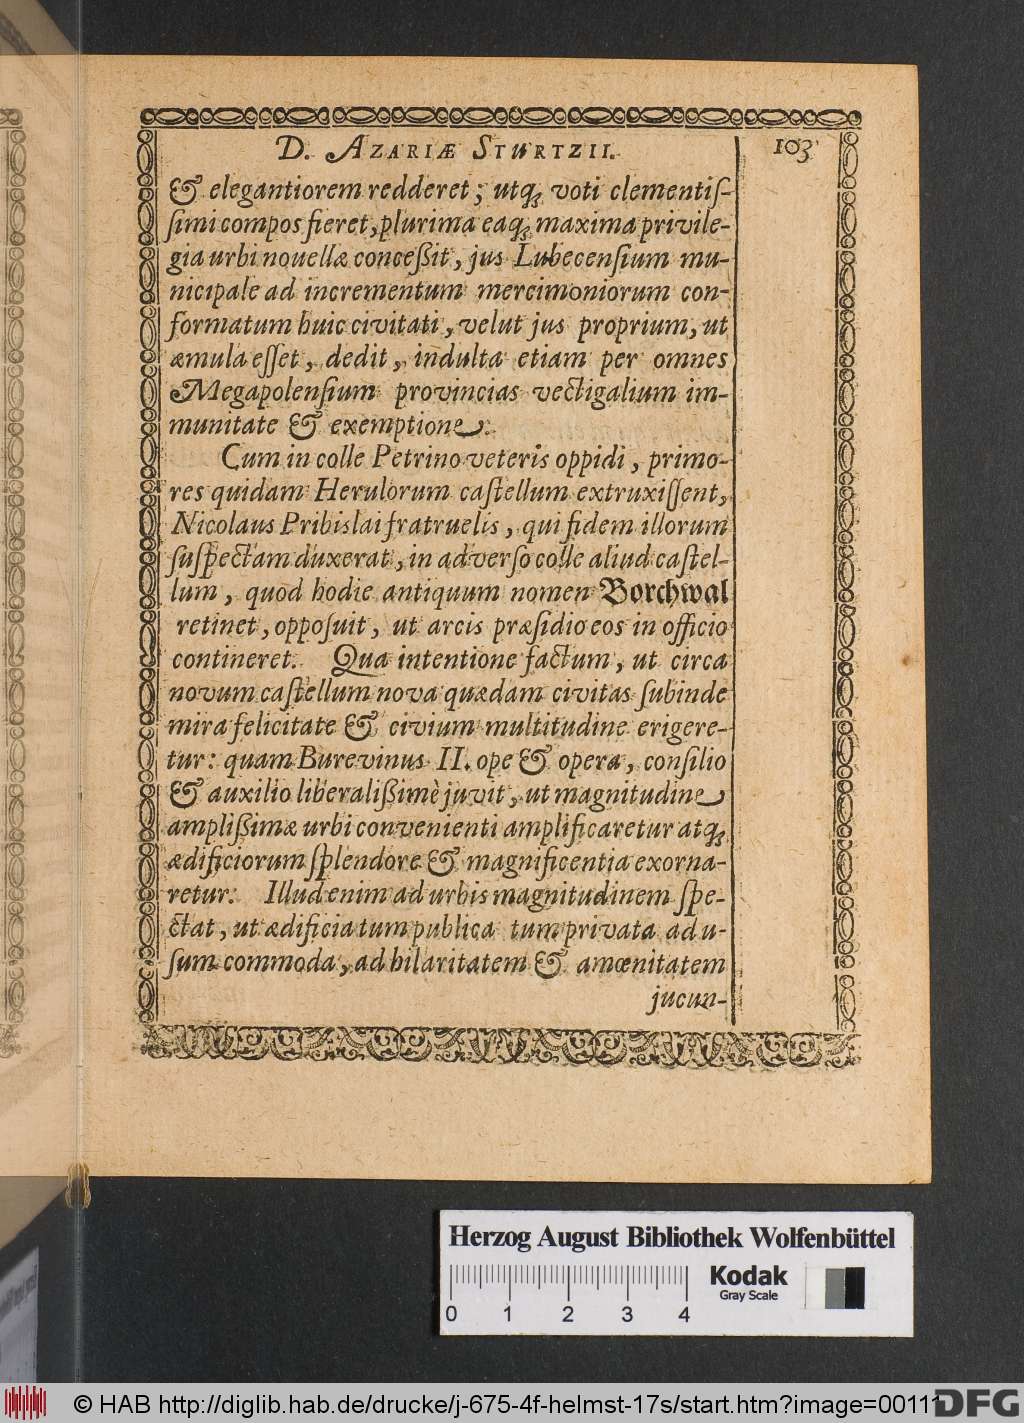 D. AZARIÆ STURTZII.
103
& elegantiorem redderet; utq́ꝫ voti clementiſ-
ſimi compos fieret, plurima eaq́ꝫ maxima privile-
gia urbi nouellæ conceßit, jus Lubecenſium mu-
nicipale ad incrementum mercimoniorum con-
formatum huic civitati, velut jus proprium, ut
æmula eſſet, dedit, indulta etiam per omnes
Megapolenſium provincias vectigalium im-
munitate & exemptione.
Cum in colle Petrino veteris oppidi, primo-
res quidam Herulorum caſtellum extruxiſſent,
Nicolaus Pribislai fratruelis, qui fidem illorum
ſuſpectam duxerat, in adverſo colle aliud caſtel-
lum, quod hodie antiquum nomen Borchwal
retinet, oppoſuit, ut arcis præſidio eos in officio
contineret. Qua intentione factum, ut circa
novum caſtellum nova quædam civitas ſubinde
mira felicitate & civium multitudine erigere-
tur: quam Burevinus II. ope & opera, conſilio
& auxilio liberalißimè juvit, ut magnitudine
amplißimæ urbi convenienti amplificaretur atq́ꝫ
ædificiorum ſplendore & magnificentia exorna-
retur. Illud enim ad urbis magnitudinem ſpe-
ctat, ut ædificia tum publica tum privata ad u-
ſum commoda, ad hilaritatem & amœnitatem
jucun-
Herzog August Bibliothek Wolfenbüttel
Kodak
Gray Scale
0 1 2 3 4
© HAB http://diglib.hab.de/drucke/j-675-4f-helmst-17s/start.htm?image=00111
DFG